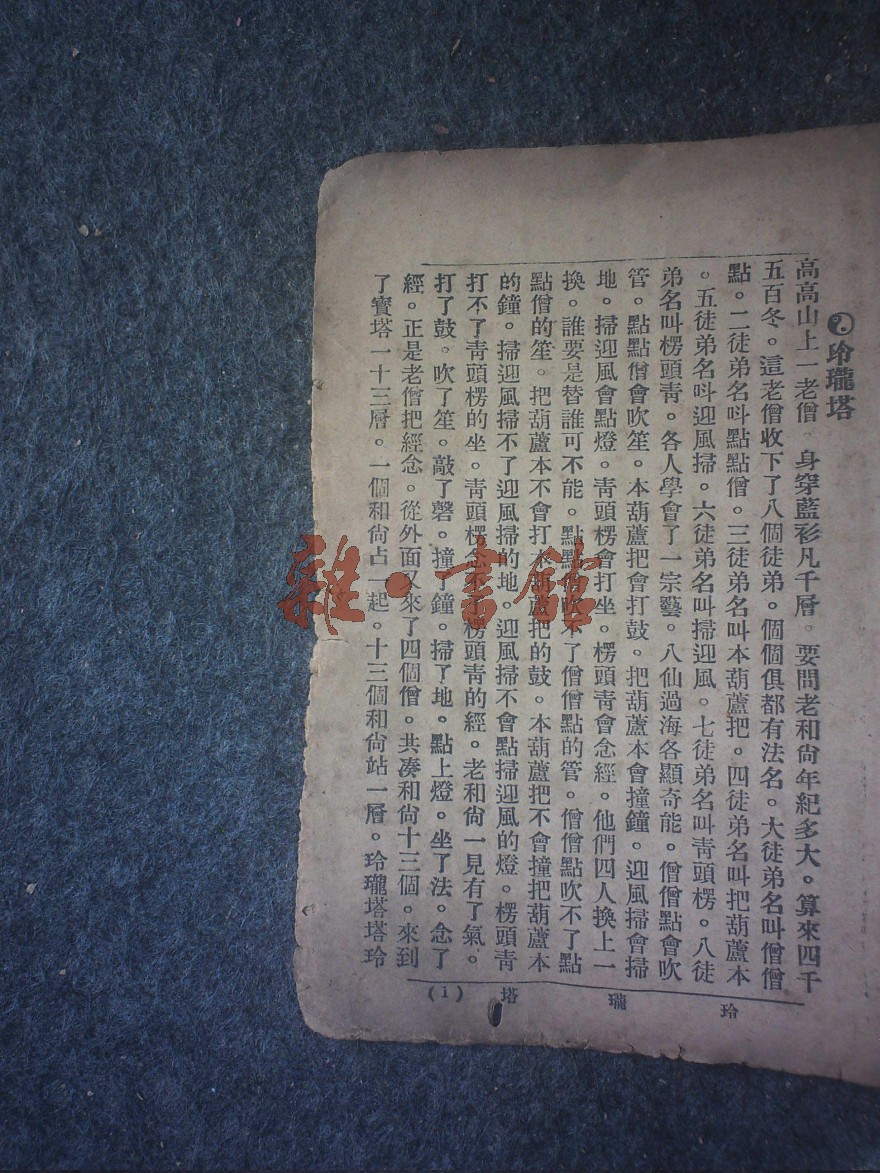 玲瓏塔
高高山上一老僧。身穿藍衫凡千層。要問老和尙年紀多大。算來四千
五百冬。這老僧收下了八個徒弟。個個俱都有法名。大徒弟名叫僧僧
點。二徒弟名呌點點僧。三徒弟名叫本葫蘆把。四徒弟名叫把葫蘆本
。五徒弟名呌迎風掃。六徒弟名叫掃迎風。七徒弟名叫靑頭楞。八徒
弟名叫楞頭靑。各人學會了一宗藝。八仙過海各顯奇能。僧僧點會吹
管。點點僧會吹笙。本葫蘆把會打鼓。把葫蘆本會撞鐘。迎風掃會掃
地。掃迎風會點燈。靑頭楞會打坐。楞頭靑會念經。他們四人換上一
換。誰要是替誰可不能。點點吹不了僧僧點的管。僧僧點吹不了點
點僧的笙。把葫蘆本不會打本葫蘆把的鼓。本葫蘆把不會撞把葫蘆本
的鐘。掃迎風掃不了迎風掃的地。迎風掃不會點掃迎風的燈。楞頭靑
打不了靑頭楞的坐。靑頭楞念不了楞頭靑的經。老和尙一見有了氣。
打了鼓。吹了笙。敲了磬。撞了鐘。掃了地。點上燈。坐了法。念了
經。正是老僧把經念。從外面又來了四個僧。共凑和尙十三個。來到
了寶塔一十三層。一個和尙占一起。十三個和尙站一層。玲瓏塔塔玲
玲瓏塔
(1)
雜·書館